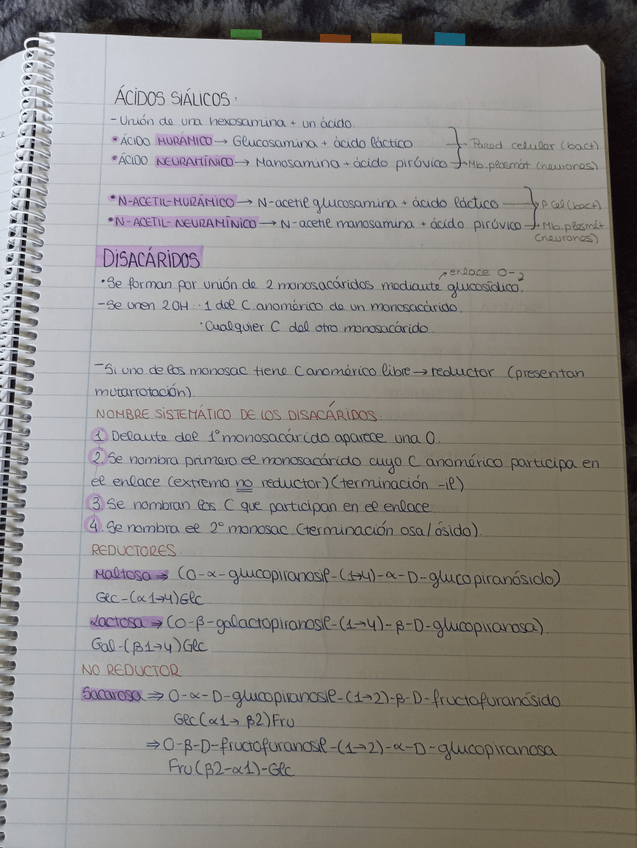 ÁCIDOS SIÁLICOS.
- Unión de una hexosamina + un ácido
• ÁCIDO MURÁMICO → Glucosamina + ácido láctico
→ Pared celular (bact)
• ÁCIDO NEURAMÍNICO → Manosamina + ácido pirúvico
→ Mb. plasmát (neuronas)
• N-ACETIL-MURÁMICO → N-acetil glucosamina + ácido láctico
→ P. Cel (bact)
• N-ACETIL-NEURAMÍNICO → N-acetil manosamina + ácido pirúvico
→ Mb. plasmát
(neuronas)
DISACÁRIDOS
enlace O-2
• Se forman por unión de 2 monosacáridos mediante glucosídico.
- Se unen 2 OH · 1 del C anomérico de un monosacárido.
· Cualquier C del otro monosacárido.
- Si uno de los monosac tiene C anomérico libre → reductor (presentan
mutarrotación)
NOMBRE SISTEMÁTICO DE LOS DISACÁRIDOS.
1 Delante del 1º monosacárido aparece una O.
2 Se nombra primero el monosacárido cuyo C anomérico participa en
el enlace (extremo no reductor) (terminación -il)
3 Se nombran los C que participan en el enlace
4. Se nombra el 2º monosac. (terminación osa/ósido).
REDUCTORES.
Maltosa ⇒ (O-α-glucopiranosil-(1→4)-α-D-glucopiranósido)
Glc-(α1→4)Glc
Lactosa ⇒ (O-β-galactopiranosil-(1→4)-β-D-glucopiranosa)
Gal-(β1→4)Glc
NO REDUCTOR
Sacarosa ⇒ O-α-D-glucopiranosil-(1→2)-β-D-fructofuranósido
Glc(α1→β2)Fru
⇒ O-β-D-fructofuranosil-(1→2)-α-D-glucopiranosa
Fru(β2-α1)-Glc